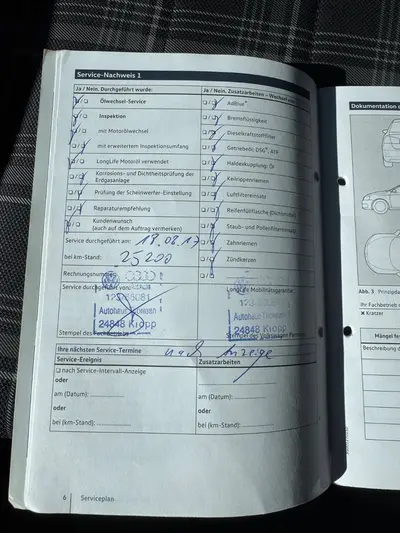 Service-Nachweis 1
Ja / Nein. Durchgeführt wurde:
Ja / Nein. Zusatzarbeiten – Wechsel von
Ölwechsel-Service
AdBlue®
Inspektion
Bremsflüssigkeit
mit Motorölwechsel
Dieselkraftstofffilter
mit erweitertem Inspektionsumfang
Getriebeöl DSG®,
LongLife Motoröl verwendet
Haldexkupplung: Öl
Korrosions- und Dichtheitsprüfung der
Erdgasanlage
Keilrippenriemen
Prüfung der Scheinwerfer-Einstellung
Luftfiltereinsatz
Reparaturempfehlung
Reifenfüllflasche
Kundenwunsch
(auch auf dem Auftrag vermerken)
Staub- und Pollenfiltereinsatz
Zahnriemen
Service durchgeführt am: 18.08.17
bei km-Stand: 25200
Zündkerzen
Rechnungsnummer
Service durchgeführt von:
LongLife Mobilitätsgarantie
Autohaus
24848 Kropp
Stempel des
Autohaus
24848 Kropp
Stempel des Volkswagen
Ihre nächsten Service-Termine
nach Anzeige
Service-Ereignis
Zusatzarbeiten
nach Service-Intervall-Anzeige
oder
am (Datum):
oder
bei (km-Stand):
am (Datum):
oder
bei (km-Stand):
6 Serviceplan
Dokumentation
Abb. 3 Prinzipda
Ihr Fachbetrieb
× Kratzer
Mängel fes
Beschreibung d